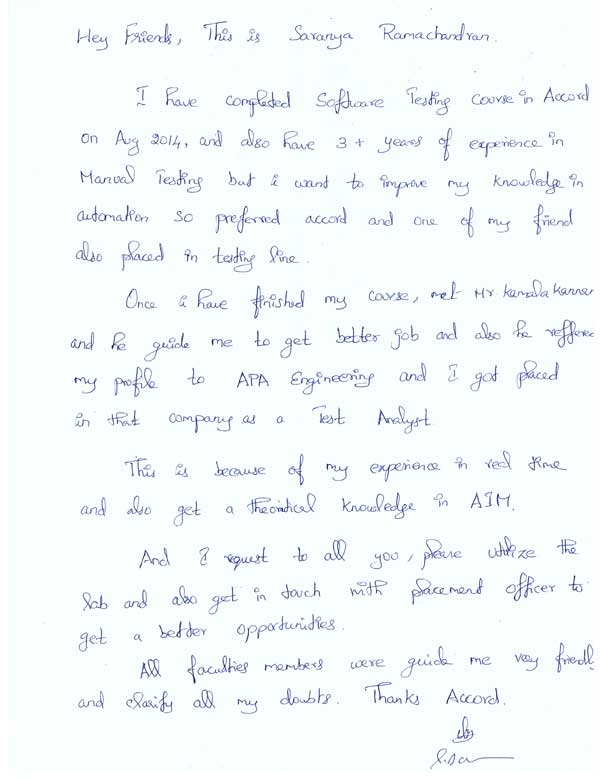 Hey Friends, This is Saranya Ramachandran.
I have completed Software Testing course in Accord
on Aug 2014, and also have 3+ years of experience in
Manual Testing but i want to improve my knowledge in
automation so preferred accord and one of my friend
also placed in testing line.
Once i have finished my course, met Mr. Kamala Kannan
and he guide me to get better job and also he reffere
my profile to APA Engineering and I got placed
in that company as a Test Analyst
This is because of my experience in real time
and also get a theoritical knowledge in AIM.
And I request to all you, please utilize the
lab and also get in touch with placement officer to
get a better opportunities.
All faculties members were guide me very friendl
and clarify all my doubts. Thanks Accord.